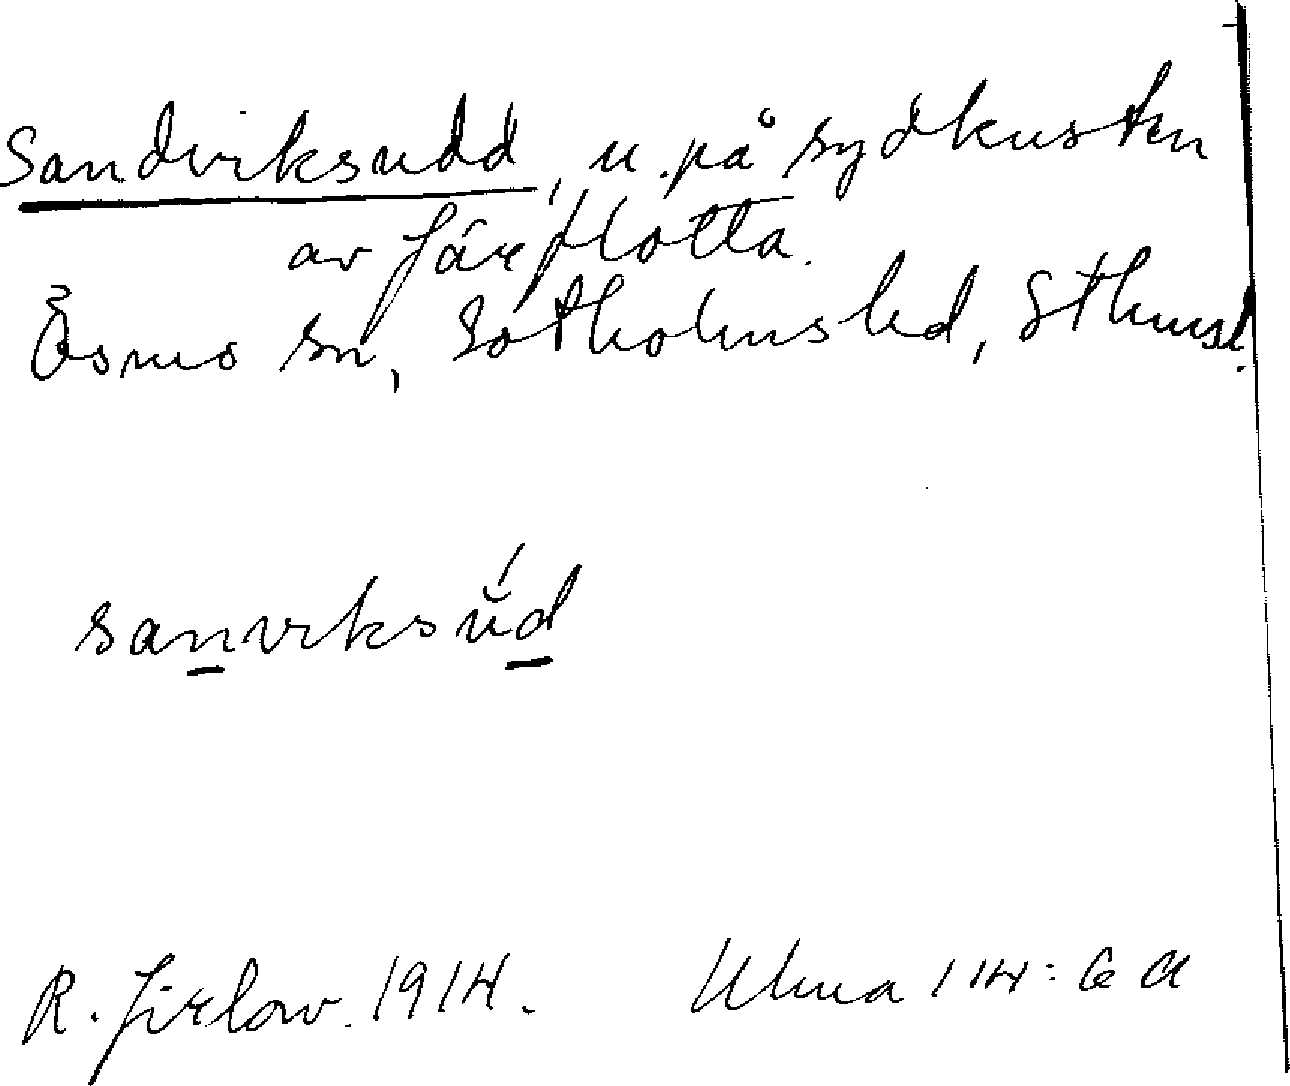 Sandviksudd, u. på sydkusten
av Järflotta.
Ösmo sn, Sotholms hd, Sthmsl.
sanviksŭ́d
R. Jirlow. 1914.
Ulma 114: 6 a